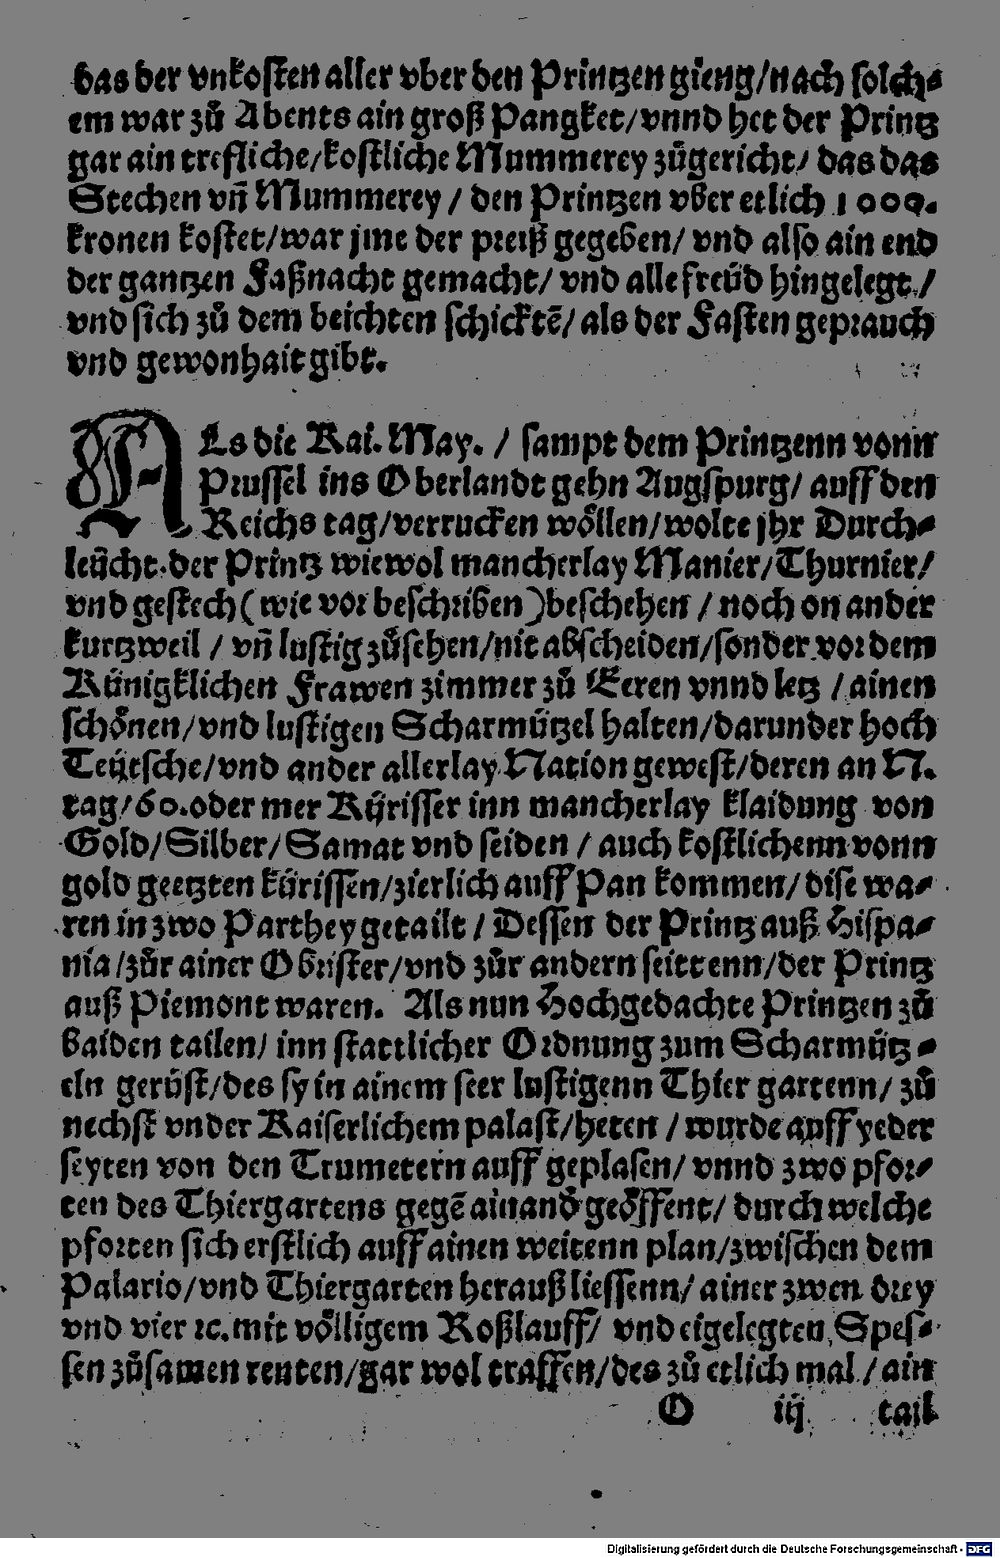 das der vnkosten aller vber den Printzen gieng/nach solch⸗
em war zů Abents ain groß Pangket/vnnd het der Printz
gar ain trefliche/kostliche Mummerey zůgericht/ das das
Stechen vñ Mummerey / den Printzen vber etlich 1000.
kronen kostet/war jme der preiß gegeben/ vnd also ain end
der gantzen Faßnacht gemacht/ vnd alle freüd hingelegt /
vnd sich zů dem beichten schicktē/ als der Fasten geprauch
vnd gewonhait gibt.
ALs die Kai. May. / sampt dem Printzenn vonn
Prussel ins Oberlandt gehn Augspurg/ auff den
Reichs tag/verrucken wöllen/wolte jhr Durch⸗
leücht. der Printz wiewol mancherlay Manier/Thurnier/
vnd gestech (wie vor beschriben) beschehen / noch on ander
kurtzweil / vñ lustig zůsehen/nit abscheiden/sonder vor dem
Künigklichen Frawen zimmer zů Eeren vnnd letz / ainen
schönen/vnd lustigen Scharmützel halten/darunder hoch
Teütsche/vnd ander allerlay Nation gewest/deren an N.
tag/60.oder mer Kürisser inn mancherlay klaidung von
Gold/Silber/Samat vnd seiden / auch kostlichenn vonn
gold geetzten kürissen/zierlich auff Pan kommen/ dise wa⸗
ren in zwo Parthey getailt / Dessen der Printz auß Hispa⸗
nia/zůr ainer Obrister/vnd zůr andern seittenn/der Printz
auß Piemont waren. Als nun Hochgedachte Printzen zů
baiden tailen/ inn stattlicher Ordnung zum Scharmütz⸗
eln gerüst/des sy in ainem seer lustigenn Thier gartenn/ zů
nechst vnder Kaiserlichem palast/heten / wurde auff yeder
seyten von den Trumetern auff geplasen/ vnnd zwo pfor⸗
ten des Thiergartens gegē ainand geöffent/ durch welche
pforten sich erstlich auff ainen weitenn plan/zwischen dem
Palario/vnd Thiergarten herauß liessenn/ ainer zwen drey
vnd vier ꝛc. mit völligem Roßlauff/ vnd eigelegten Spes⸗
sen zůsamen renten/gar wol traffen/des zů etlich mal / ain
O iij tail
Digitalisierung gefördert durch die Deutsche Forschungsgemeinschaft - DFG